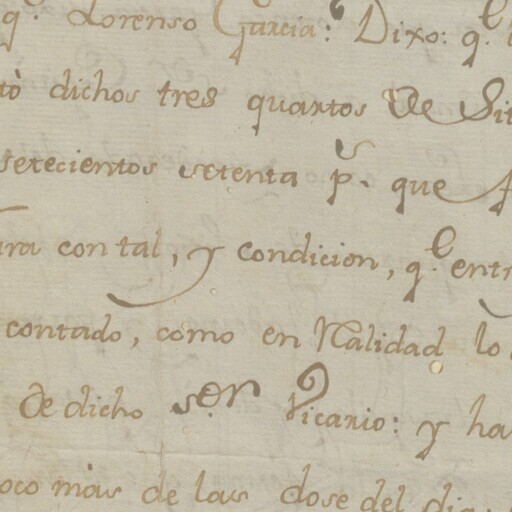 q.e Lorenso Garcia: Dixo: q.e
tò dichos tres quartos de Sit
setecientos setenta p.s que
ara con tal, y condicion, q.e entr
contado, como en Realidad lo
de dicho s.or Vicario: y ha
oco màs de las dose del dia